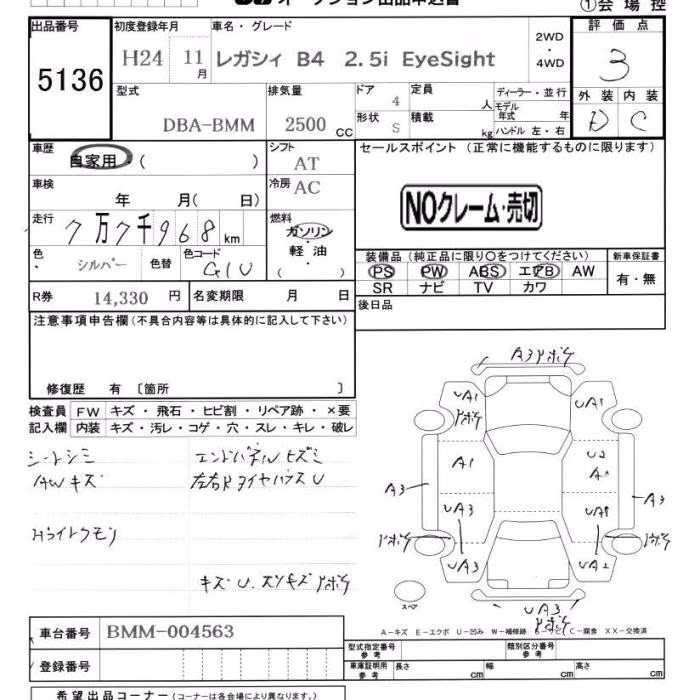 ①会場控
出品番号 初度登録年月 車名・グレード 2WD・4WD 評価点
5136 H24 11月 レガシィ B4 2.5i EyeSight 3
型式 排気量 ドア 定員 ディーラー・並行 外装 内装
DBA-BMM 2500 CC 4 人 モデル年式 年 D C
形状 S 積載 kg ハンドル 左・右
車歴 自家用・( ) シフト AT セールスポイント (正常に機能するものに限ります)
車検 年 月( 日) 冷房 AC
NOクレーム・売切
走行 7万7千968km 燃料 ガソリン・軽油 ( )
色・ シルバー 色替 色コード G1U
装備品 (純正品に限り○をつけてください) 新車保証書
PS PW ABS エアB AW 有・無
SR ナビ TV カワ
R券 14,330 円 名変期限 月 日
後日品
注意事項申告欄 (不具合内容等は具体的に記入して下さい)
修復歴 有 〔箇所 〕
検査員 FW キズ・飛石・ヒビ割・リペア跡・×要
記入欄 内装 キズ・汚レ・コゲ・穴・スレ・キレ・破レ
シートシミ エンドパネルヒズミ
AWキズ 左右RタイヤハウスU
A3
UA1 UA1
A1
A3 A3
UA3
UA3
スペア
UA3
A－キズ E－エクボ U－凹み W－補修跡 S－サビ C－腐食 XX－交換済
車台番号 BMM-004563
型式指定番号 参考 類別区分番号 参考
登録番号
車庫証明用 参考 長さ cm 幅 cm 高さ cm
希望出品コーナー (コーナーは各会場により異なります。)